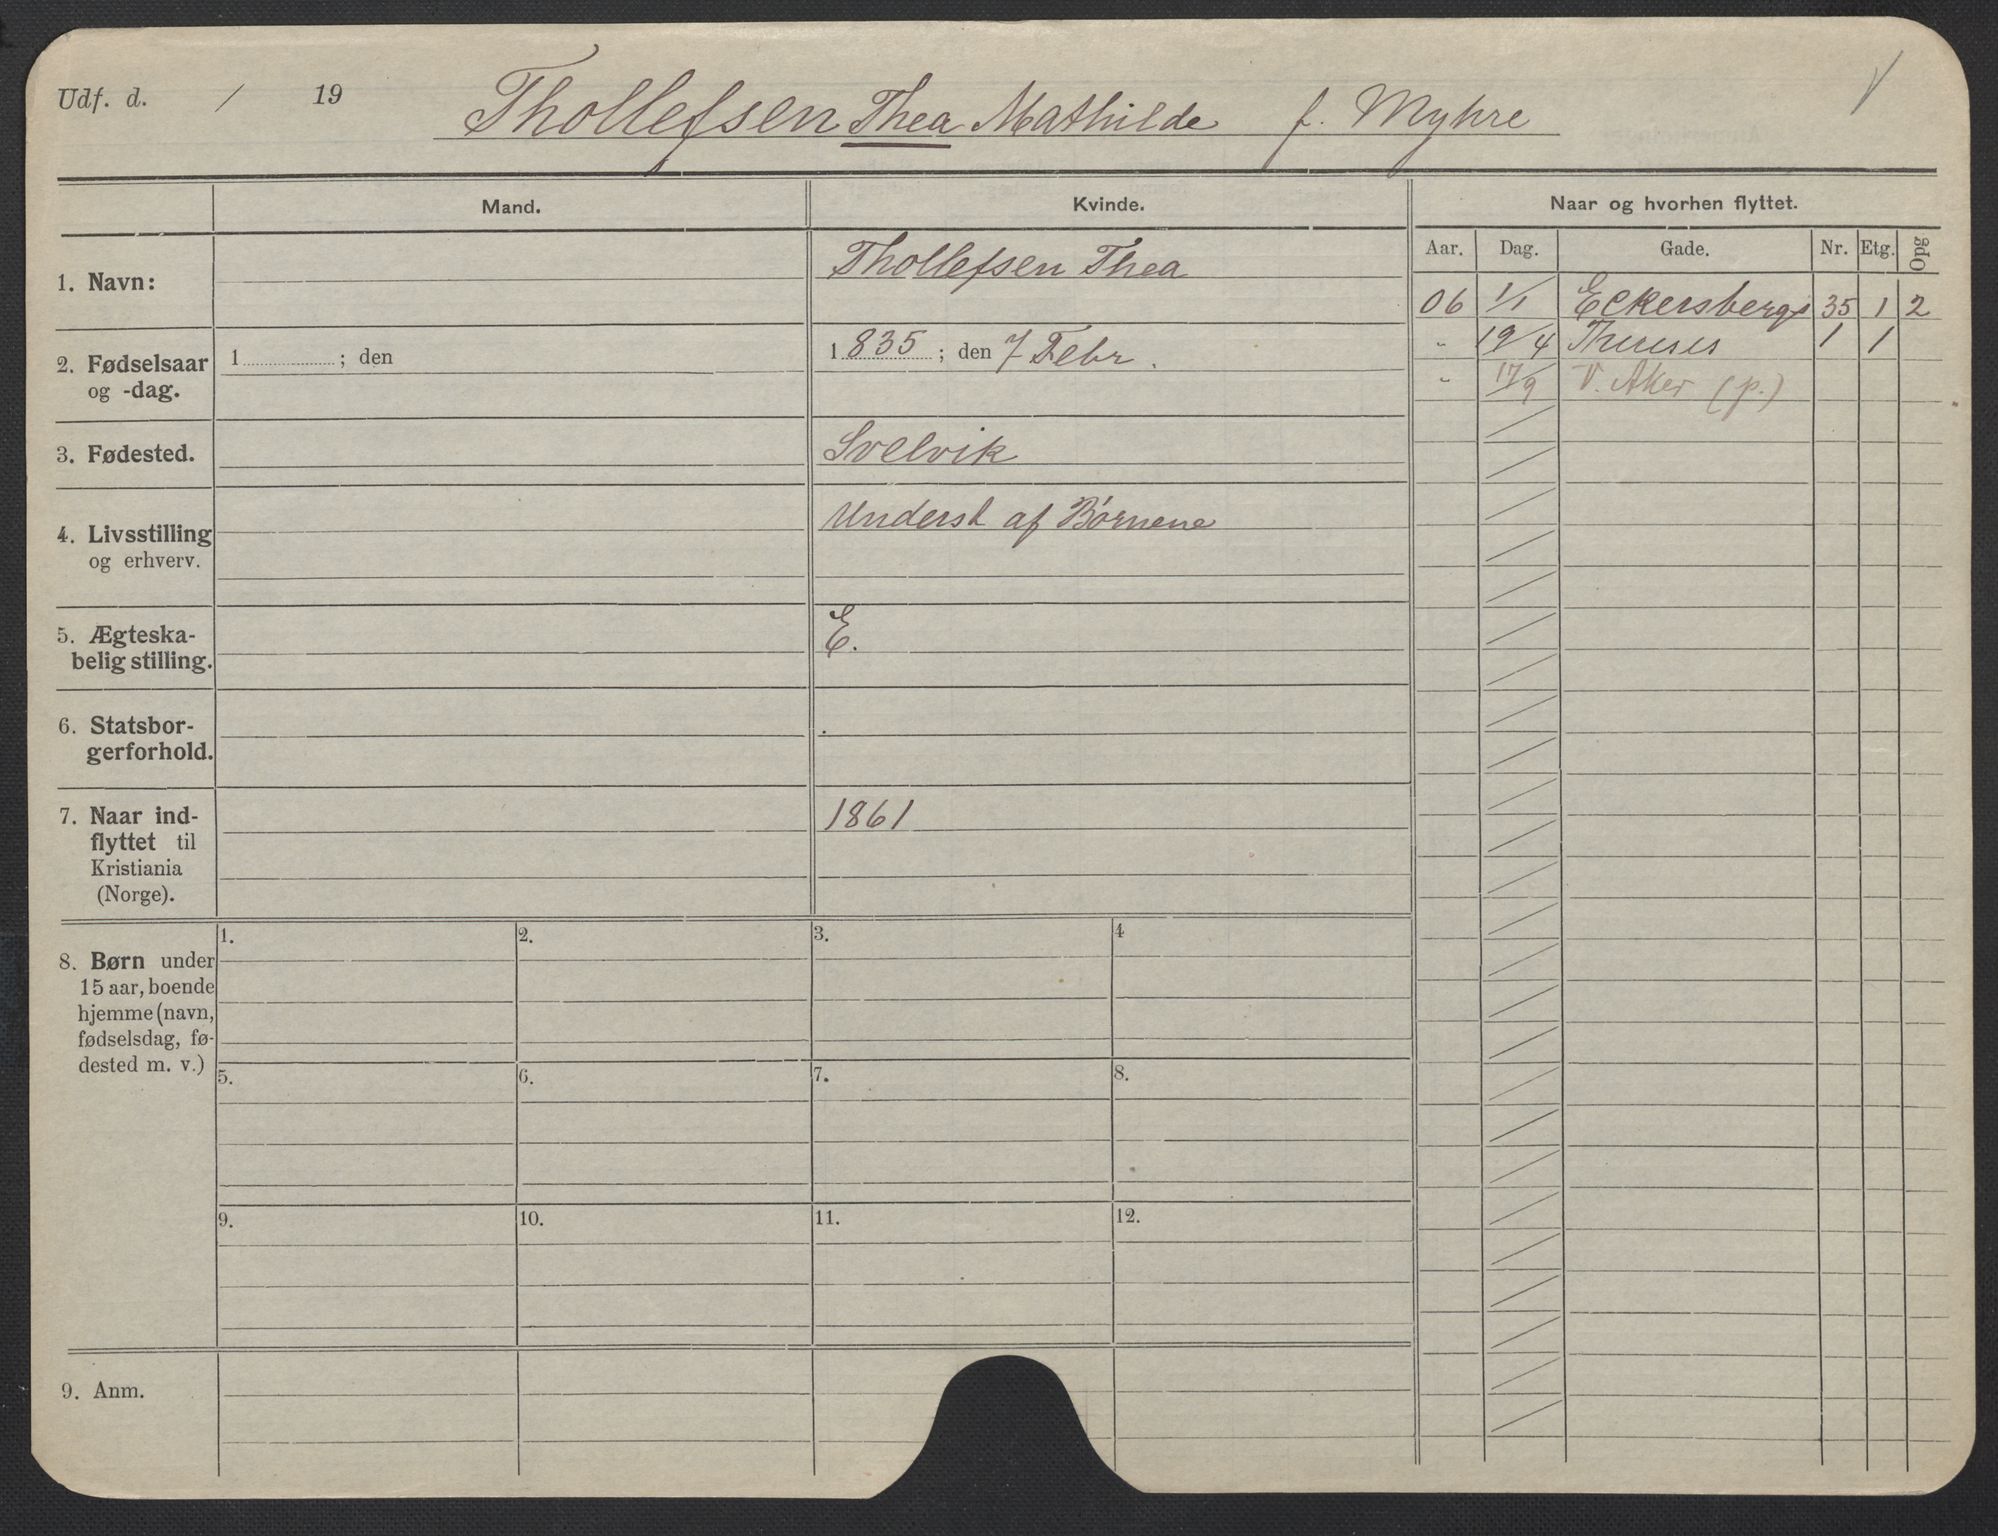 Udf. d. / 19
Thollefsen Thea Mathilde f. Myhre
Mand.
Kvinde.
Naar og hvorhen flyttet.
Aar. Dag. Gade. Nr. Etg. Opg
1. Navn:
Thollefsen Thea
06 1/1 Eckersbergs 35 1 2
" 19/4 Thereses 1 1
" 17/9 V. Aker (p.)
2. Fødselsaar
og -dag.
1 ; den
1835 ; den 7 Febr.
3. Fødested.
Svelvik
4. Livsstilling
og erhverv.
Underst af Børnene
5. Ægteska-
belig stilling.
E.
6. Statsbor-
gerforhold.
7. Naar ind-
flyttet til
Kristiania
(Norge).
1861
8. Børn under
15 aar, boende
hjemme (navn,
fødselsdag, fø-
dested m. v.)
1. 2. 3. 4
5. 6. 7. 8.
9. 10. 11. 12.
9. Anm.